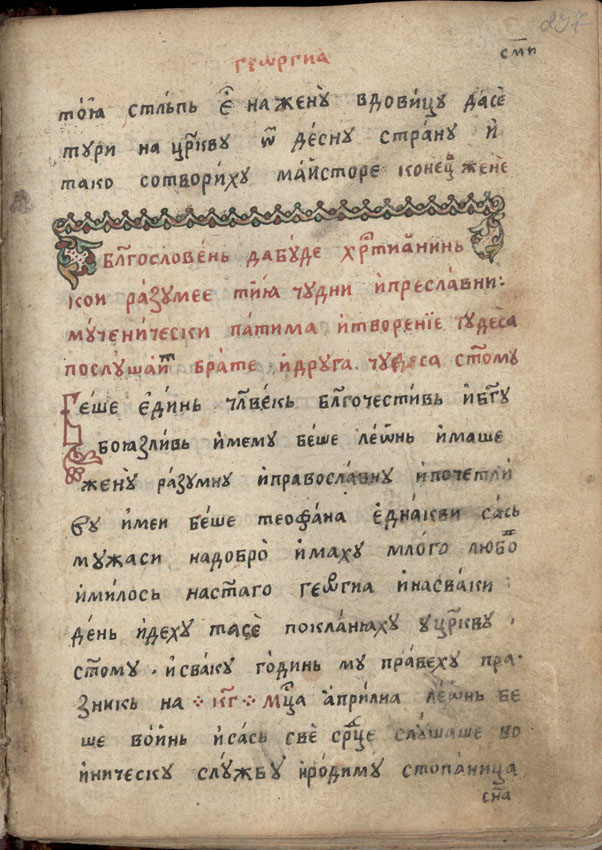 297
гео҆ргиа
сми
то́ꙗ стльпь є҆ на женꙋ̀ вдовицꙋ да сѐ
тури на цр҃квꙋ ѿ де́снꙋ странꙋ и҆
тако сотвориху ма́йсторе конец жене
Бл҃гослове́нь да бꙋ́де хр҃тиа́нинь
кои ра́зꙋмее ти́ꙗ чꙋдни и҆преславни:
мꙋчени́чески па́тима и҆творение чꙋдеса
послꙋшаит бра́те и҆дрꙋга. чꙋдеса ст҃омꙋ
Беше є҆ди́нь чл҃ве́кь бл҃гочестивь и҆бг҃ꙋ
боꙗзливь и҆мемꙋ бе́ше ле́ѡнь и҆маше
женꙋ̀ ра́зꙋмнꙋ и҆православнꙋ и҆почетли́
вꙋ и҆меи бе́ше теофа́на є҆дна́кви са́сь
мꙋжаси надобро̀ и҆махꙋ мло́го любо
и҆милось наст҃аго геѡ҆ргиа и҆насва́ки :
де́нь и҆дехꙋ тасѐ покланꙗхꙋ ꙋцр҃квꙋ .
ст҃омꙋ . и҆сва́кꙋ го́динь мꙋ пра́вехꙋ пра
зникь на ·҉ кг҃ ·҉ мц҃а а҆прилиа ле́ѡнь бе
ше во́инь и҆са́сь свѐ ср҃це слꙋ́шаше во
и҆ническꙋ слꙋ́жбꙋ и҆ро́димꙋ стопа́ница
сн҃а